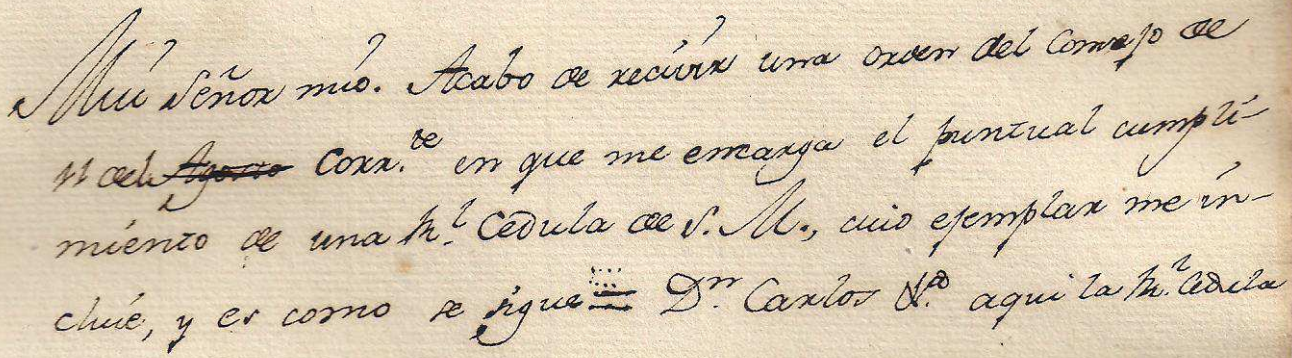 Mui Señor mio. Acabo de recivir una orden del Consejo de
11 del Agosto Corr.te en que me encarga el puntual cumpli-
miento de una Rl. Cedula de S. M., cuio ejemplar me in-
cluie, y es como se sigue = Dn. Carlos &a. aqui la Rl. Cedula